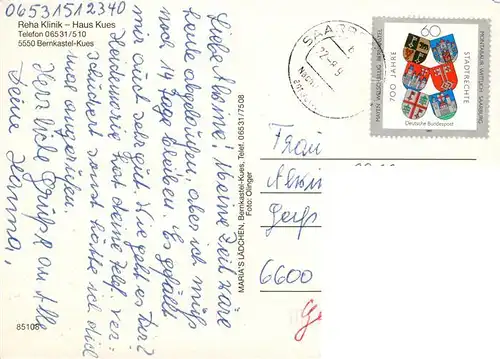 06531512340
Reha Klinik – Haus Kues
Telefon 06531/510
5550 Bernkastel-Kues
Liebe Alwine! Meine Zeit wäre
heute abgelaufen, aber ich muß
noch 14 Tage bleiben. Es gefällt
mir auch sehr gut. Wie geht es Dir?
Heidemarie hat deine Telef. ver-
schludert sonst hätte ich dich
mal angerufen.
Herz. liebe Grüße an Alle
Deine
85108
MARIA'S LÄDCHEN, Bernkastel-Kues, Telef. 06531/7508
Foto: Olinger
SAARB
22.-8.9
60
700 JAHRE
STADTRECHTE
MAYEN MONTABAUR WITTLICH SAARBURG
Deutsche Bundespost
Frau
6600